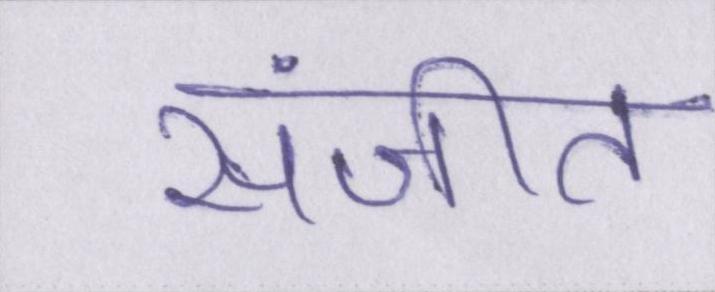 संजीत